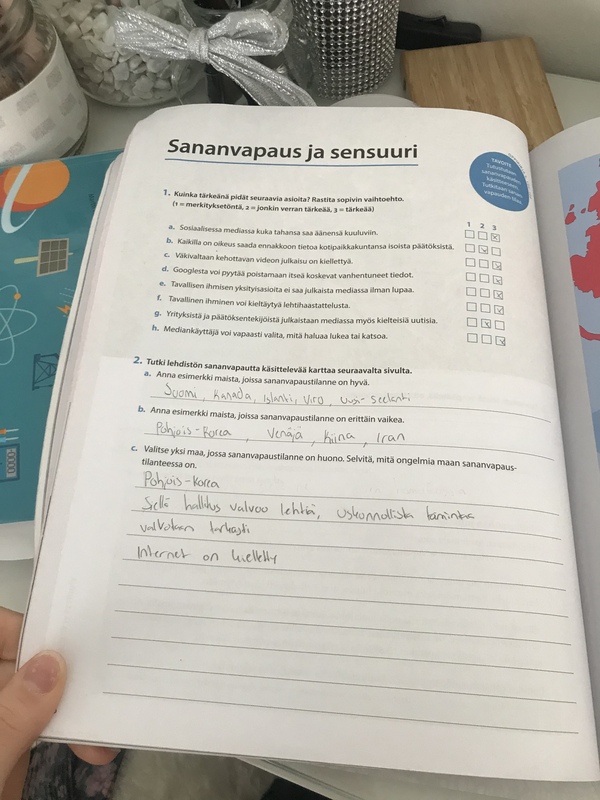 Sananvapaus ja sensuuri
TAVOITE
Tutustutaan
sananvapauden
käsitteeseen.
Tutkitaan sanan-
vapauden tilaa.
1. Kuinka tärkeänä pidät seuraavia asioita? Rastita sopivin vaihtoehto.
(1 = merkityksetöntä, 2 = jonkin verran tärkeää, 3 = tärkeää)
1 2 3
a. Sosiaalisessa mediassa kuka tahansa saa äänensä kuuluviin.
b. Kaikilla on oikeus saada ennakkoon tietoa kotipaikkakuntansa isoista päätöksistä.
c. Väkivaltaan kehottavan videon julkaisu on kiellettyä.
d. Googlesta voi pyytää poistamaan itseä koskevat vanhentuneet tiedot.
e. Tavallisen ihmisen yksityisasioita ei saa julkaista mediassa ilman lupaa.
f. Tavallinen ihminen voi kieltäytyä lehtihaastattelusta.
g. Yrityksistä ja päätöksentekijöistä julkaistaan mediassa myös kielteisiä uutisia.
h. Mediankäyttäjä voi vapaasti valita, mitä haluaa lukea tai katsoa.
2. Tutki lehdistön sananvapautta käsittelevää karttaa seuraavalta sivulta.
a. Anna esimerkki maista, joissa sananvapaustilanne on hyvä.
Suomi, Kanada, Islanti, Viro, Uusi-Seelanti
b. Anna esimerkki maista, joissa sananvapaustilanne on erittäin vaikea.
Pohjois-Korea, Venäjä, Kiina, Iran
c. Valitse yksi maa, jossa sananvapaustilanne on huono. Selvitä, mitä ongelmia maan sananvapaus-
tilanteessa on.
Pohjois-Korea
Siellä hallitus valvoo lehtiä, uskonnollista toimintaa
valvotaan tarkasti
Internet on kielletty